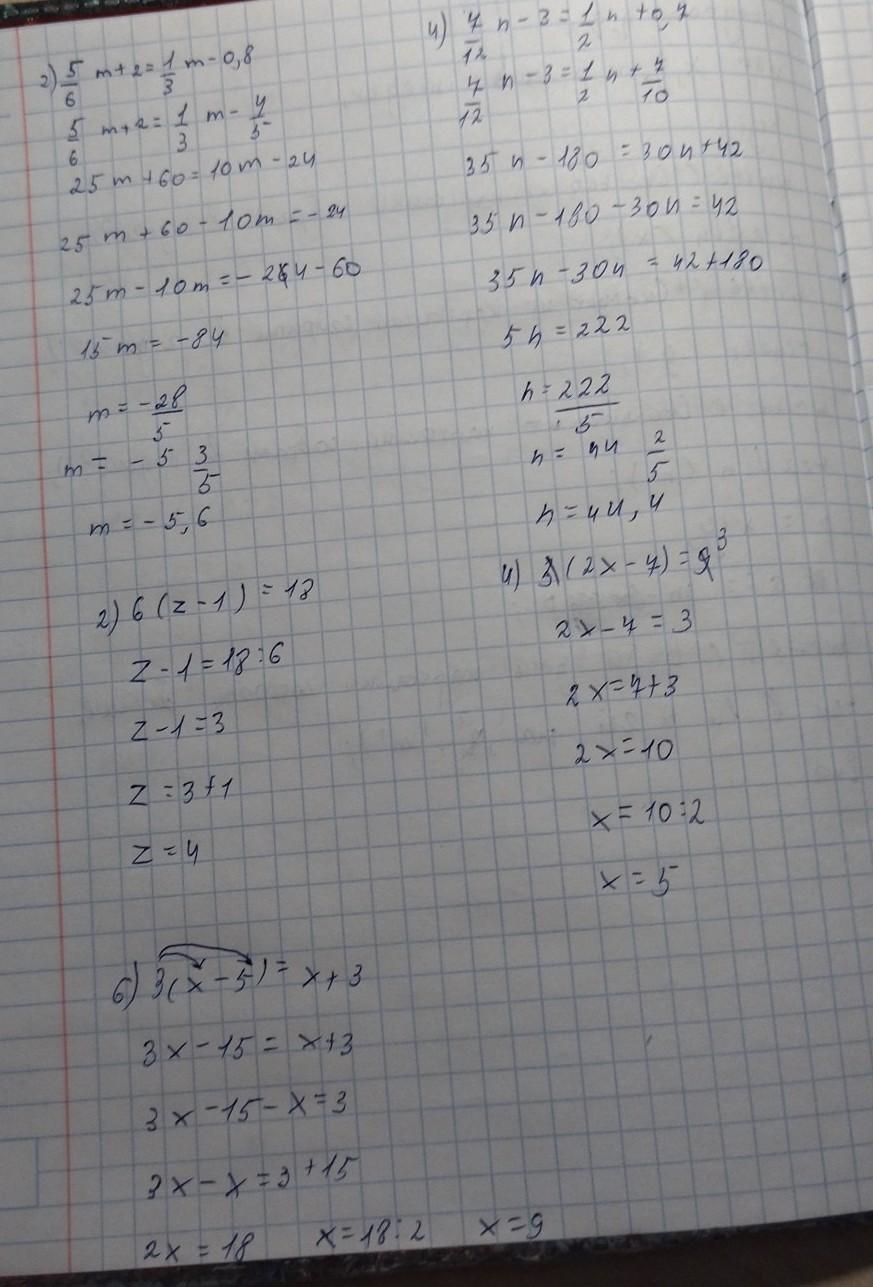 2) 5/6 m+2=1/3 m-0,8
5/6 m+2=1/3 m-4/5
25m+60=10m-24
25m+60-10m=-24
25m-10m=-24-60
15m=-84
m=-28/5
m=-5 3/5
m=-5,6
4) 7/12 n-3=1/2 n+0,7
7/12 n-3=1/2 n+7/10
35n-180=30n+42
35n-180-30n=42
35n-30n=42+180
5n=222
n=222/5
n=44 2/5
n=44,4
2) 6(z-1)=18
z-1=18:6
z-1=3
z=3+1
z=4
4) 3(2x-7)=9 3
2x-7=3
2x=7+3
2x=10
x=10:2
x=5
6) 3(x-5)=x+3
3x-15=x+3
3x-15-x=3
3x-x=3+15
2x=18 x=18:2 x=9